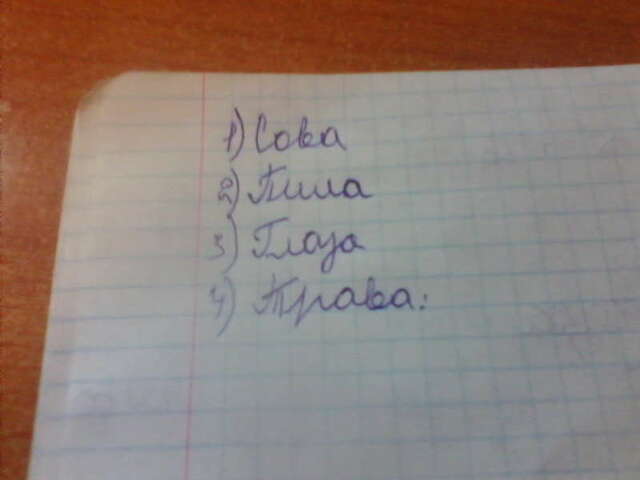 1) Сова
2) Пила
3) Глаза
4) Трава: